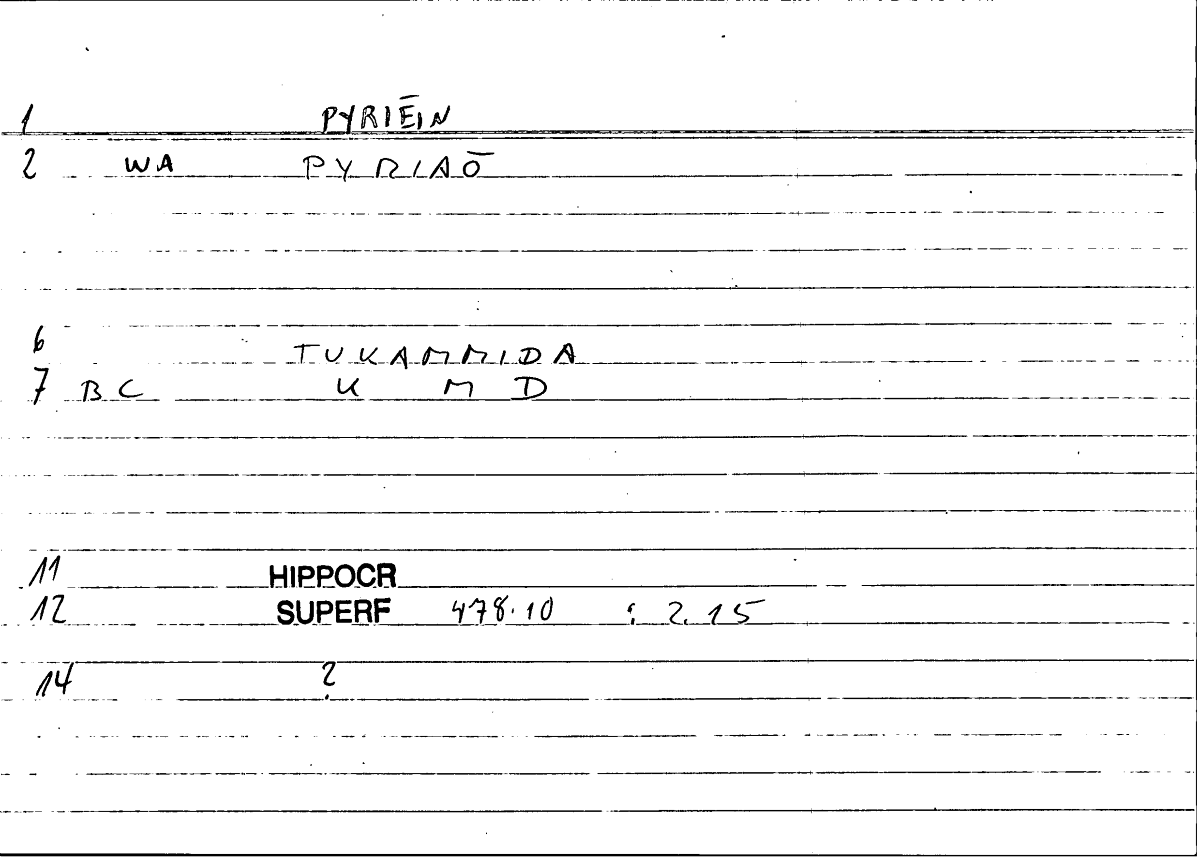 1 PYRIĒIN
2 WA PYRIAŌ
6 TUKAMMIDA
7 BC K M D
11 HIPPOCR
12 SUPERF 478.10 : 2.15
14 ?